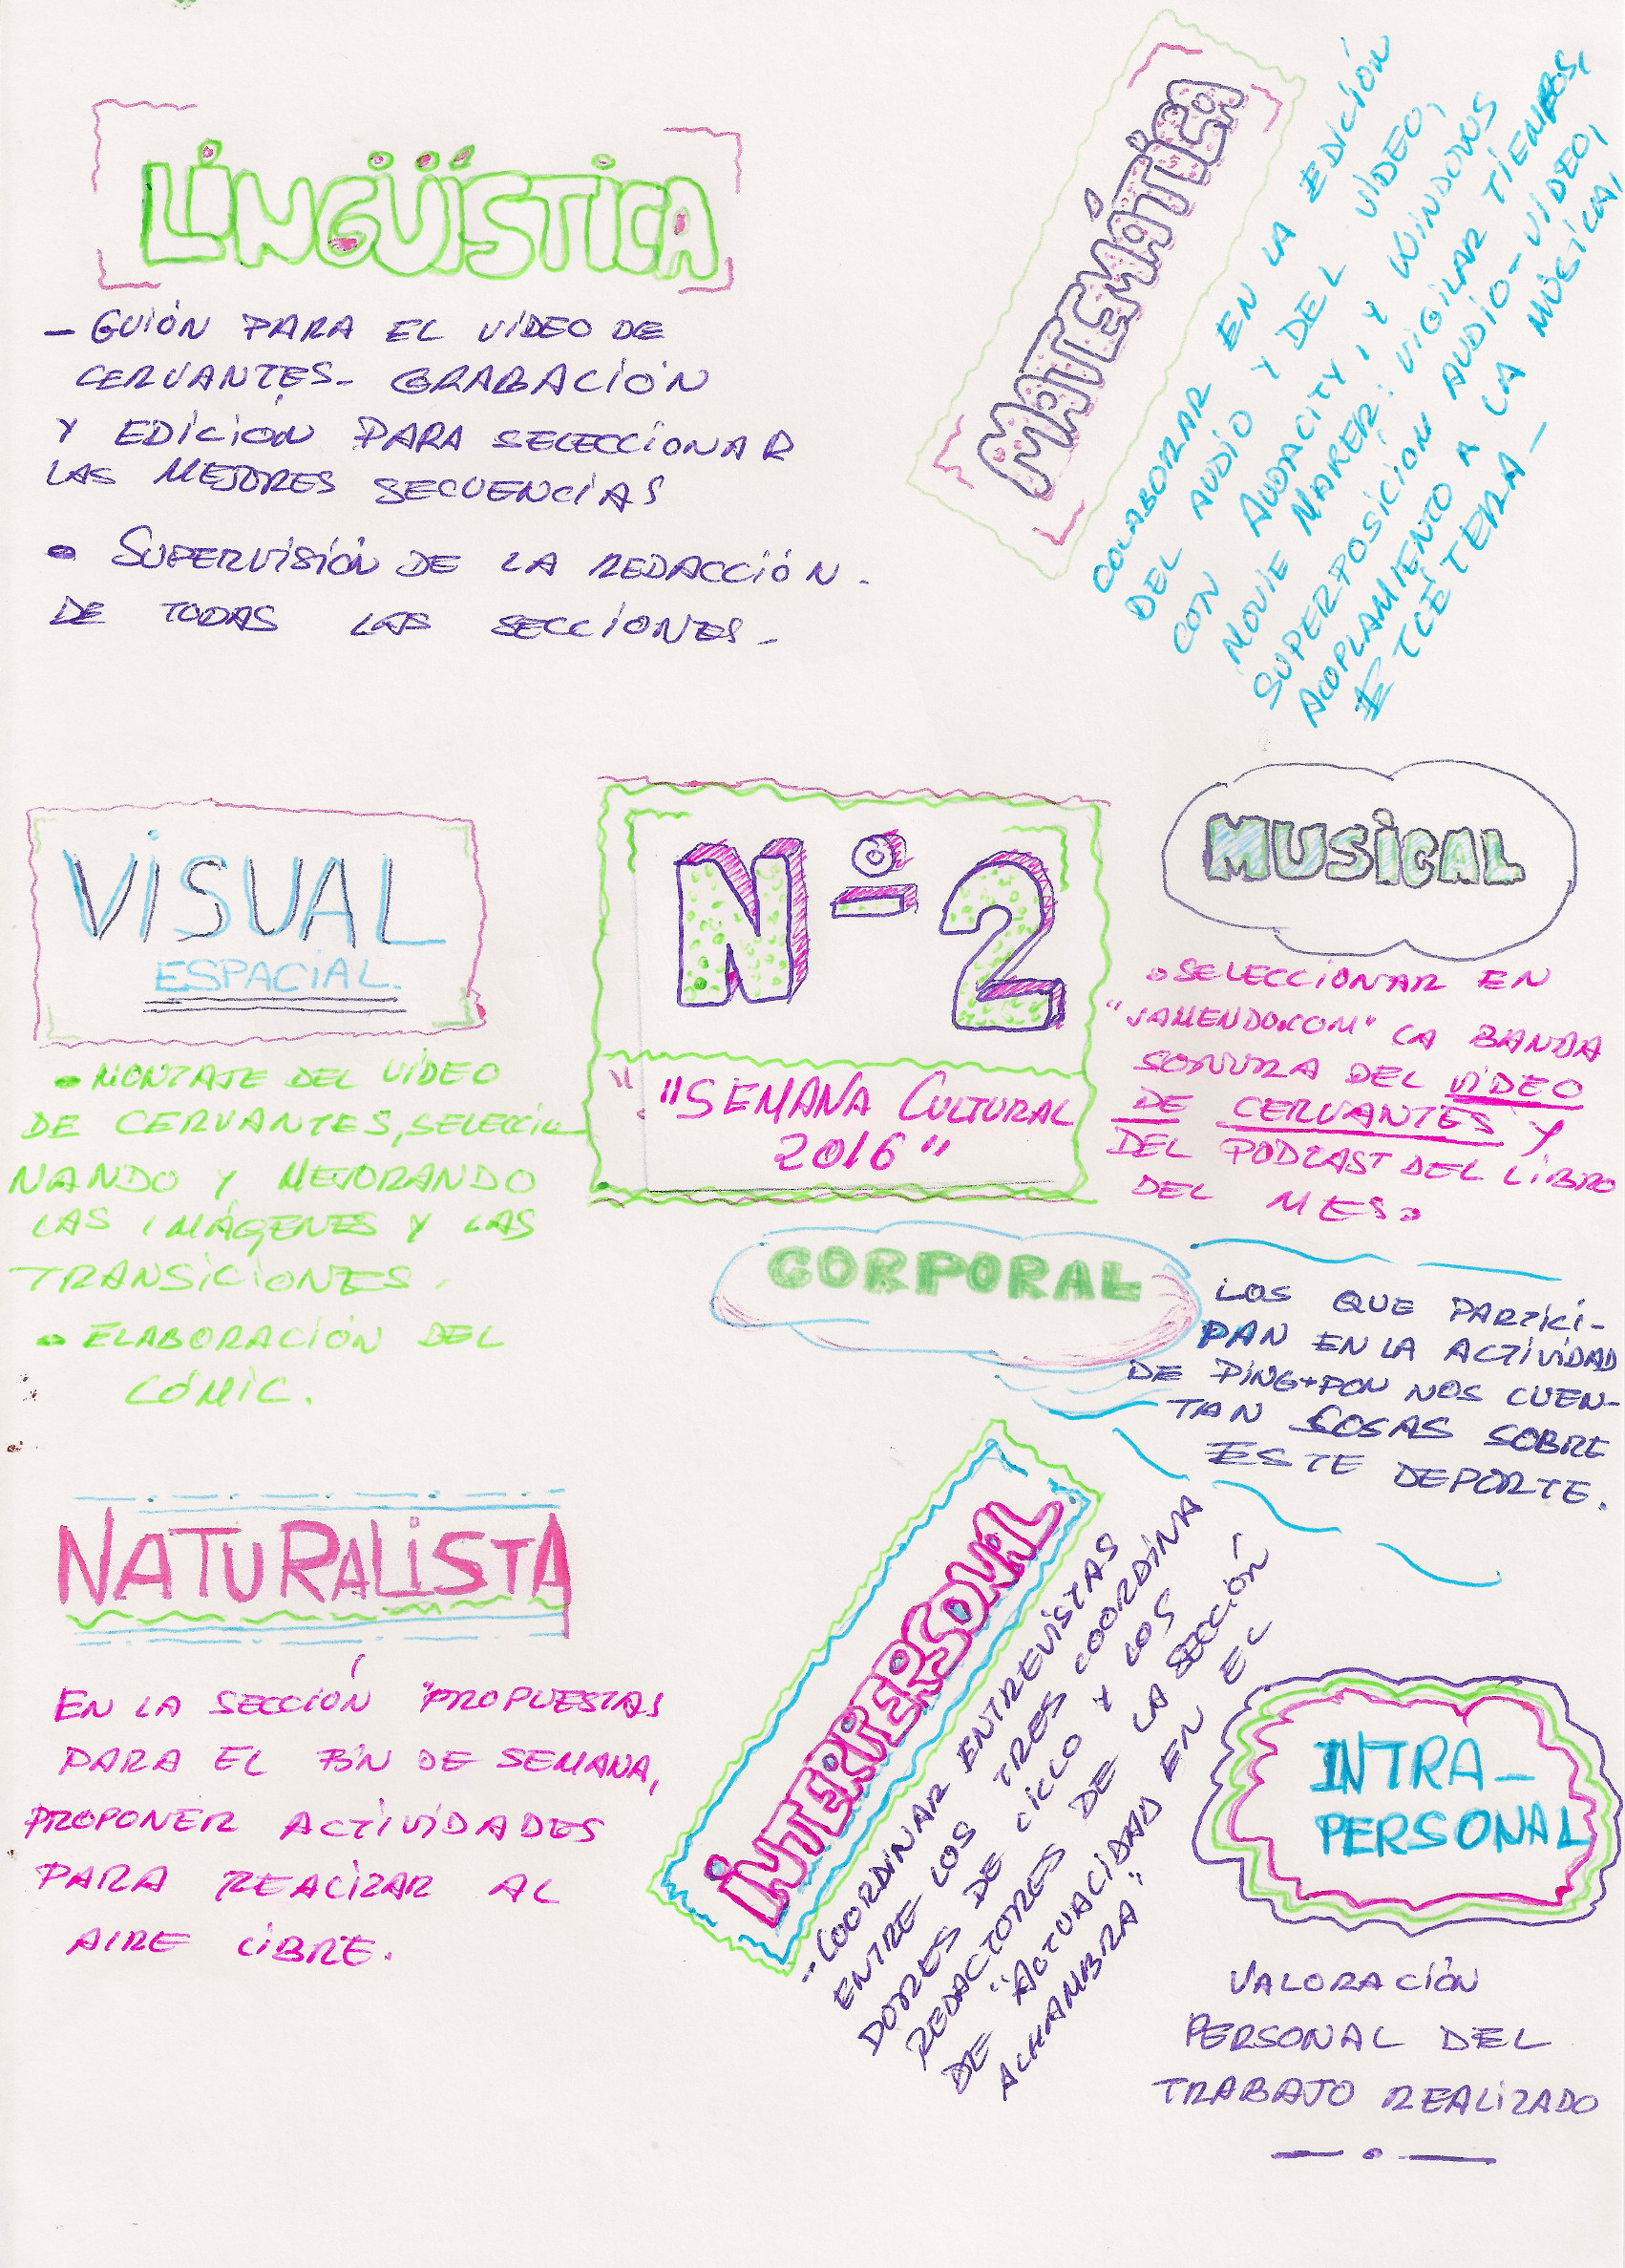 LINGÜÍSTICA
- GUIÓN PARA EL VÍDEO DE
CERVANTES- GRABACIÓN
Y EDICIÓN PARA SELECCIONAR
LAS MEJORES SECUENCIAS
• SUPERVISIÓN DE LA REDACCIÓN.
DE TODAS LAS SECCIONES-
MATEMÁTICA
COLABORAR EN LA EDICIÓN
DEL AUDIO Y DEL VÍDEO,
CON AUDACITY, Y WINDOWS
MOVIE MAKER: VIGILAR TIEMPOS,
SUPERPOSICIÓN AUDIO-VIDEO,
ACOPLAMIENTO A LA MÚSICA,
ETCÉTERA-
VISUAL
ESPACIAL.
• MONTAJE DEL VÍDEO
DE CERVANTES, SELECCIO
NANDO Y MEJORANDO
LAS IMÁGENES Y LAS
TRANSICIONES.
• ELABORACIÓN DEL
CÓMIC.
Nº 2
"SEMANA CULTURAL
2016"
MUSICAL
• SELECCIONAR EN
"JAMENDO.COM" LA BANDA
SONORA DEL VÍDEO
DE CERVANTES Y
DEL PODCAST DEL LIBRO
DEL MES.
CORPORAL
LOS QUE PARTICI-
PAN EN LA ACTIVIDAD
DE PING+PON NOS CUEN-
TAN COSAS SOBRE
ESTE DEPORTE.
NATURALISTA
EN LA SECCIÓN "PROPUESTAS
PARA EL FIN DE SEMANA,
PROPONER ACTIVIDADES
PARA REALIZAR AL
AIRE LIBRE.
INTERPERSONAL
- COORDINAR ENTREVISTAS
ENTRE LOS TRES COORDINA
DORES DE CICLO Y LOS
REDACTORES DE LA SECCIÓN
DE "ACTUALIDAD EN EL
ALHAMBRA".
INTRA-
PERSONAL
VALORACIÓN
PERSONAL DEL
TRABAJO REALIZADO